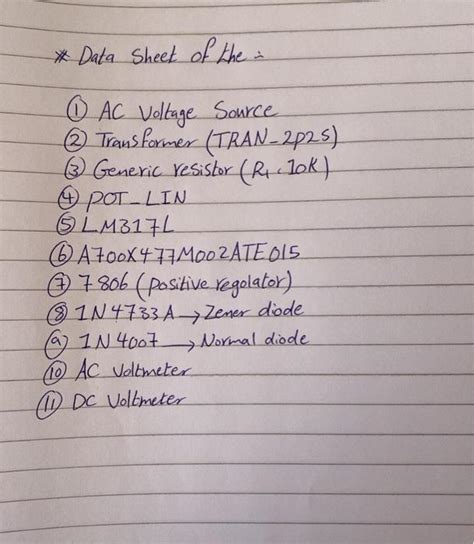 * Data Sheet of the :-
① AC Voltage Source
② Transformer (TRAN_2P2S)
③ Generic resistor (R₁, 10K)
④ POT_LIN
⑤ LM317L
⑥ A700X477M002ATE015
⑦ 7806 (positive regolator)
⑧ 1N4733A → Zener diode
⑨ 1N4007 → Normal diode
⑩ AC Voltmeter
⑪ DC Voltmeter